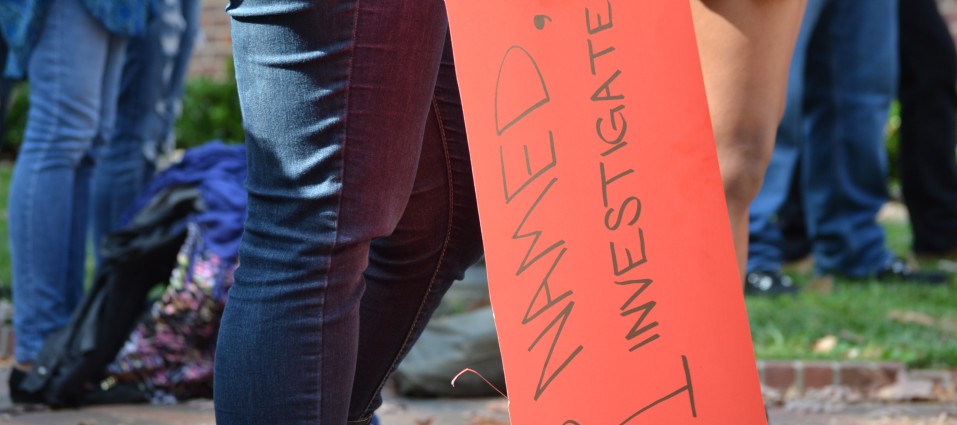 NAMED,
INVESTIGATE